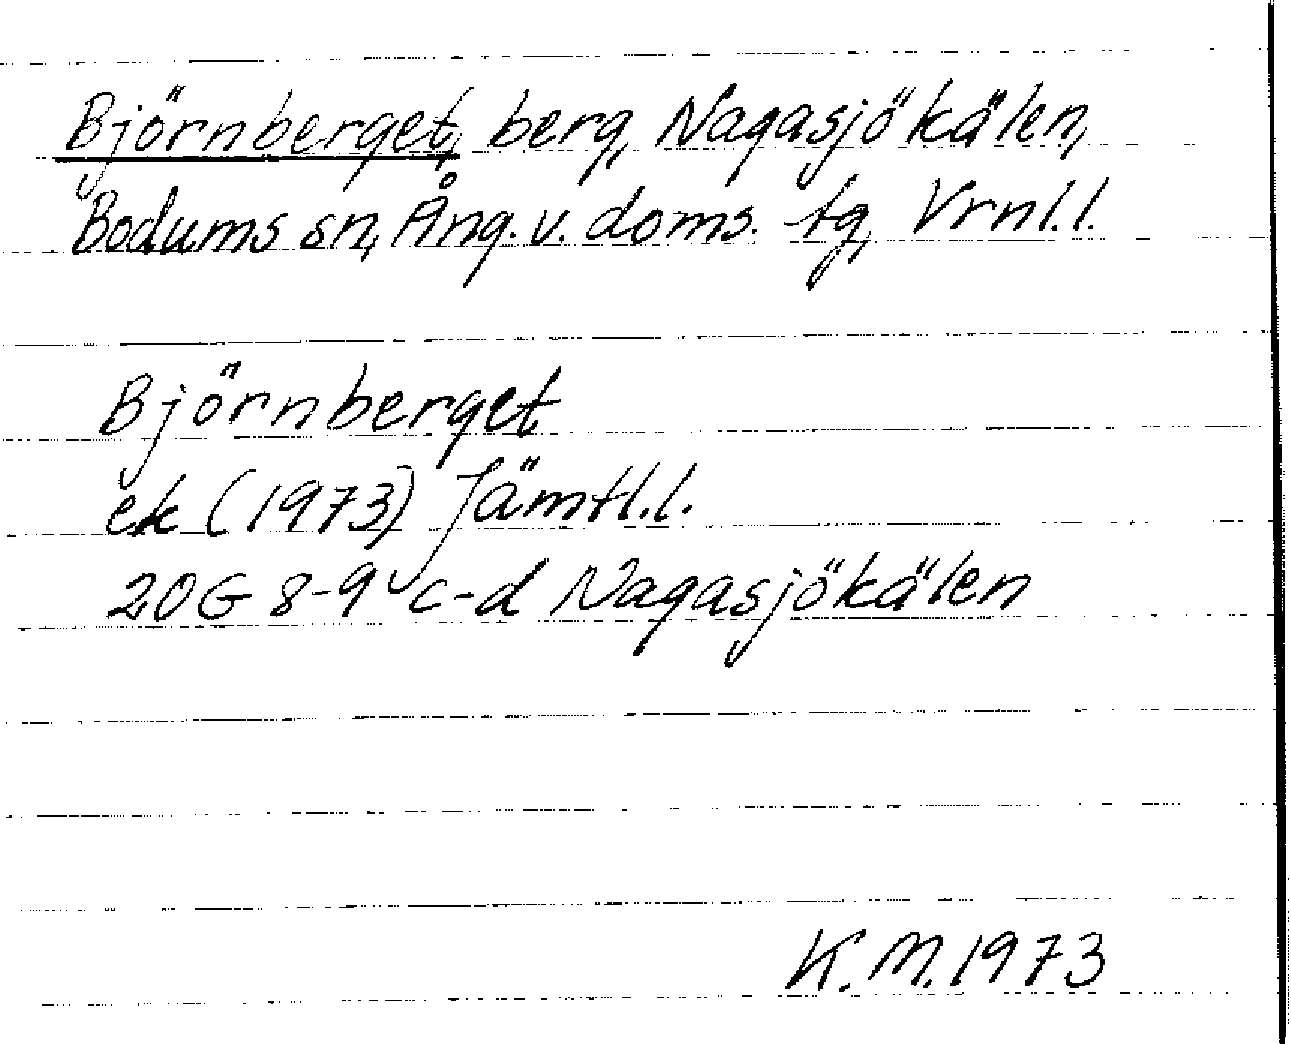 Björnberget, berg, Nagasjökälen,
Bodums sn, Ång. v. doms. tg, Vrnl.l.
Björnberget
ek (1973) Jämtl.l.
20G 8-9 c-d Nagasjökälen
K.M. 1973